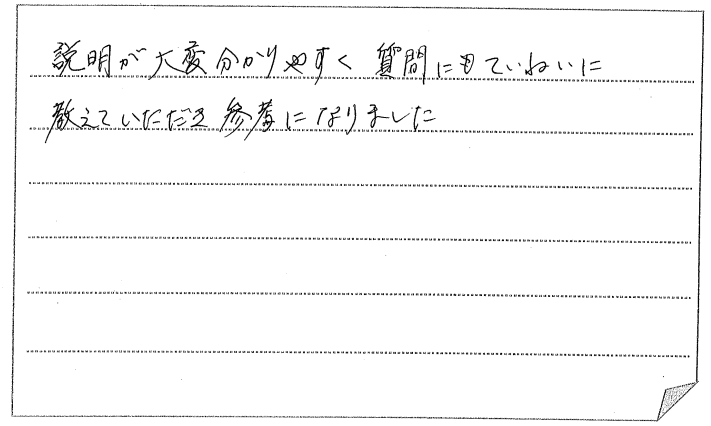 説明が大変分かりやすく 質問にもていねいに
教えていただき 参考になりました